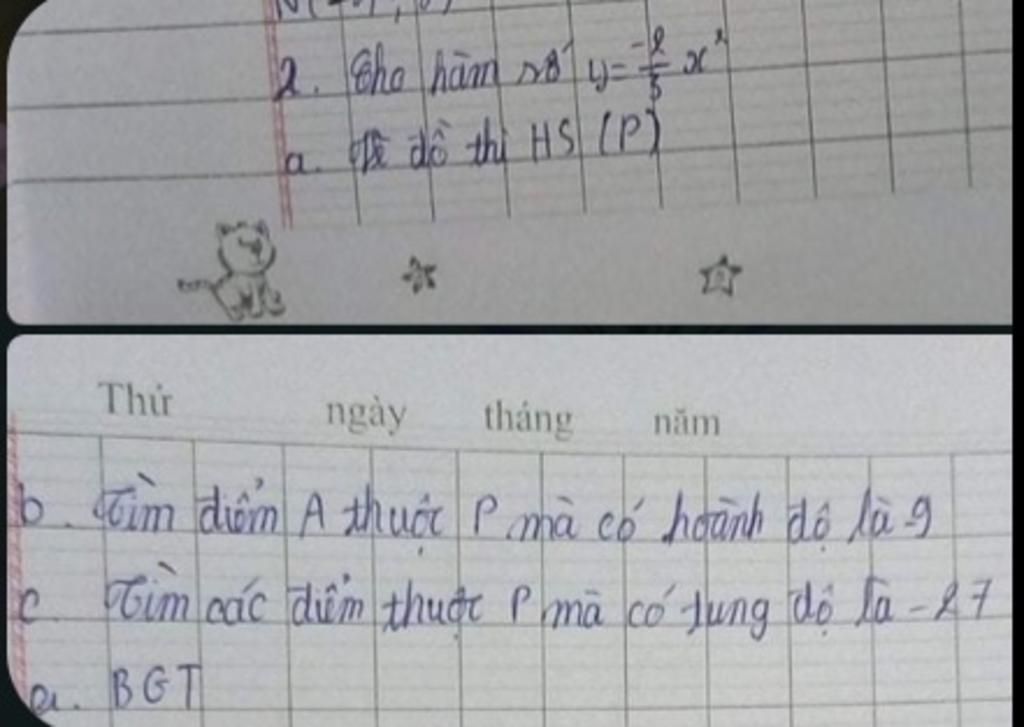 2. Cho hàm số y = -2/5 x²
a. Vẽ đồ thị HS (P)
Thứ ngày tháng năm
b. Tìm điểm A thuộc P mà có hoành độ là -9
c. Tìm các điểm thuộc P mà có tung độ là -27
a. BGT